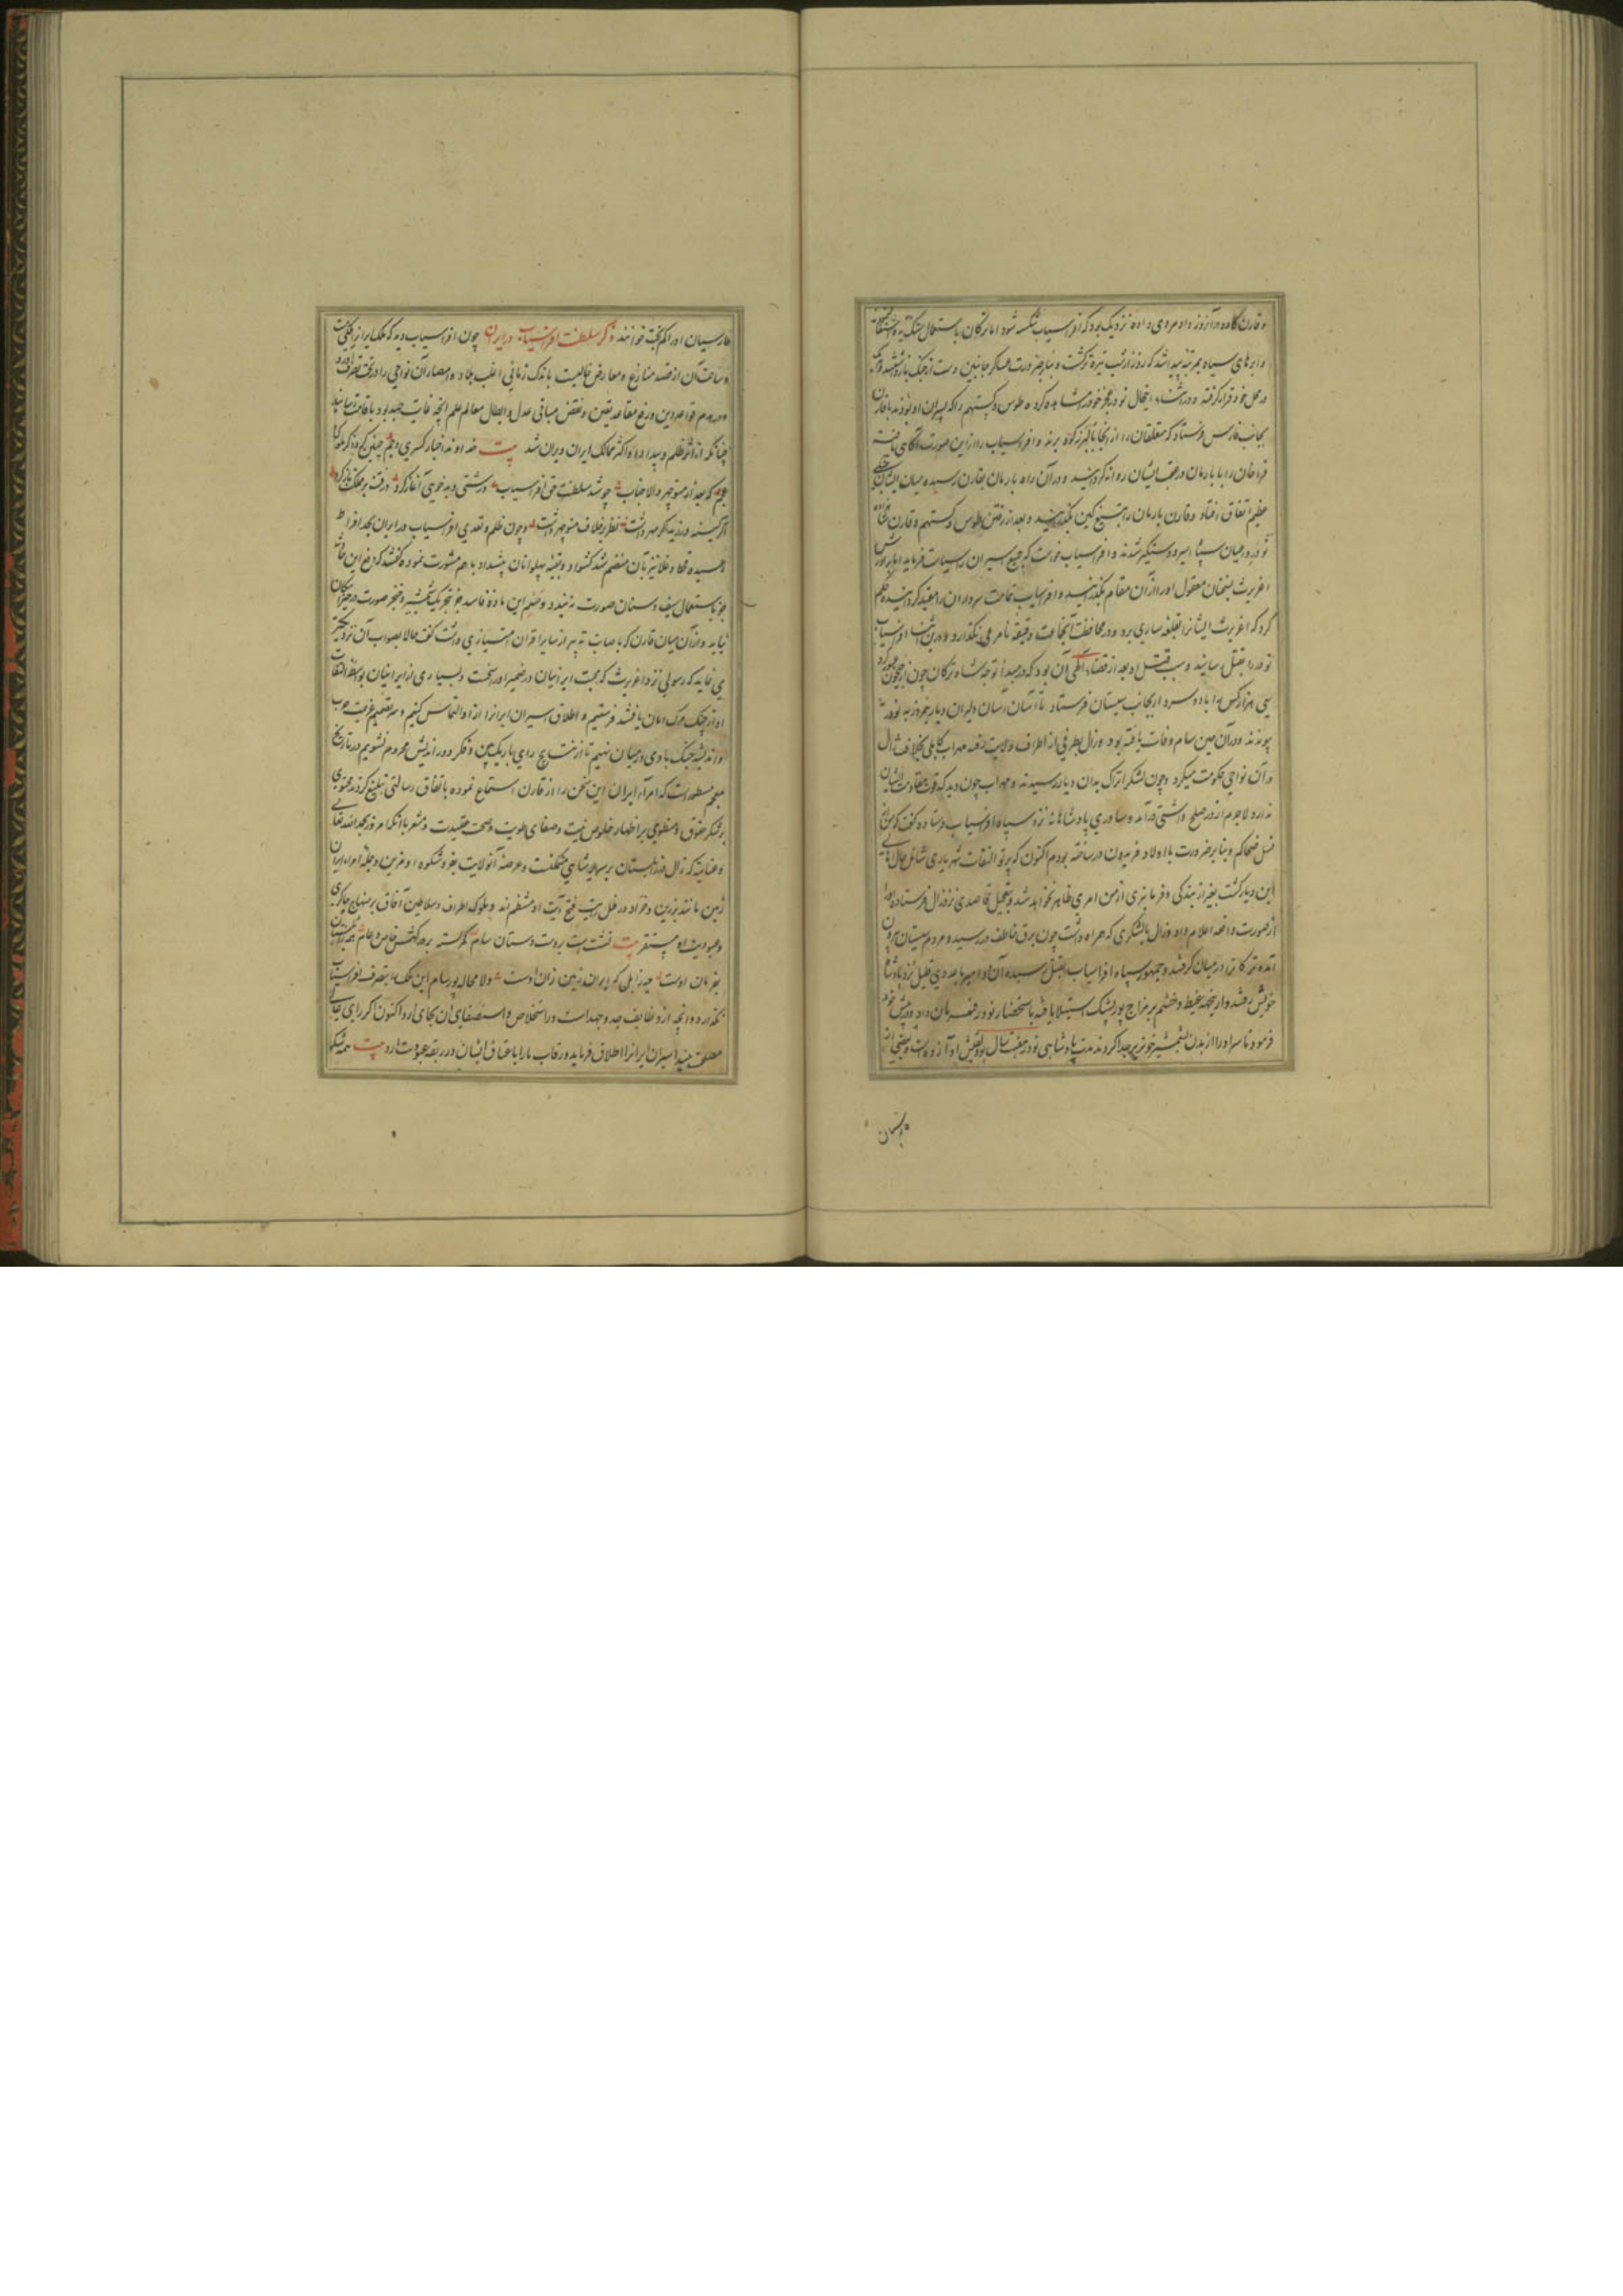 و قارن کاوه در آنروز داد مردی داده نزدیک بود که افراسیاب شکسته شود اما ترکان باستعمال سنگ یده اشتغال
و ابرهای سیاه بمرتبه پیدا شد که روز از شب تیره تر گشت و بنا بر ضرورت عساکر جانبین دست از جنگ باز
در محل خود قرار گرفته و در اثناء این حال نوذر عجز خود در مشاهده کرده طوس و گستهم را که پسران او بودند با قارن
بجانب فارس فرستاد که متعلقان را از آنجا بالبرز کوه برند و افراسیاب را از این صورت آگاهی یافته
قراخان را با بارمان در عقب ایشان روانه گردانید و در آن راه بارمان بقارن رسیده میان ایشان
عظیم اتفاق افتاد و قارن بارمان را بتیغ کین بگذرانید و بعد از رفتن طوس و گستهم و قارن
نوذر در میان سپاه اسیر و دستگیر شدند و افراسیاب خواست که جمیع اسیران را سیاست فرماید اما برادرش
اغریرث بسخنان معقول او را از آن مقام بگذرانید و افراسیاب تمامت سرداران را مقید گردانیده حکم
کرد که اغریرث ایشانرا بقلعه ساری برد و در محافظت آنجماعت دقیقه نامرعی نگذارد و در این اثنا افراسیاب
نوذر را بقتل رسانید و سبب قتل او بعد از قضاء الهی آن بود که در مبدأ توجه شاه ترکان چون از جیحون عبور کرد
سی هزار کس را با دو سردار بجانب سیستان فرستاد تا آسان آسان دلیران دیار نیمروز به نوذر
پیوندند و در آن حین سام وفات یافته بود و زال بطرفی از اطراف ولایت رفته مهراب کابلی بخلافت زال
در آن نواحی حکومت میکرد و چون لشکر اتراک بدان دیار رسیدند و مهراب چون دید که قوت مقاومت ایشان
ندارد لاجرم از در صلح و آشتی درآمد و ساوری پادشاهانه نزد سپاه افراسیاب فرستاده گفت که من از
نسل ضحاکم و بنا بر ضرورت با اولاد فریدون در ساخته بودم اکنون که پرتو التفات شهریاری شامل حال اهالی
این دیار گشت بغیر از بندگی و فرمانبری از من امری ظاهر نخواهد شد و بتعجیل قاصدی نزد زال فرستاده او را
از صورت واقعه اعلام داد و زال با لشکری که همراه داشت چون برق خاطف در رسید و مردم سیستان بیرون
آمده ترکانرا در میان گرفتند و جمهور سپاه افراسیاب بقتل رسیده آن دو امیر با عددی قلیل نزد پادشاه
خویش رفتند و از این جهة غیظ و خشم بر مزاج پور پشنک استیلا یافته باستحضار نوذر فرمان داد و در پیش خود
فرمود تا سر او را از بدن بشمشیر خونریز جدا کردند مدت پادشاهی نوذر هفت سال بود لقبش او آزاده است و بعضی از
فارسیان
فارسیان او را کم بخت خوانند ذکر سلطنت افراسیاب در ایران چون افراسیاب دید که ملک ایران
و ساحت آن از قصد منازع و معارض خالیست باندک زمانی اغلب بلاد و امصار آن نواحی را در تحت تصرف آورد
و در هدم قواعد دین و رفع مقاعد یقین و نقض مبانی عدل و ابطال معالم علم آنچه غایت جهد بود باقامت رسانید
چنانکه از اثر ظلم و بیداد او اکثر ممالک ایران ویران شد بیت خداوند اخبار کسری و جم چنین کرد ذکر ملوک
عجم که بعد از منوچهر والا جناب چو شد سلطنت حق افراسیاب درشتی و بدخویی آغاز کرد
اگر کینه ورزید اگر مهر داشت نظر بر خلاف منوچهر داشت و چون ظلم و تعدی افراسیاب در ایران بحد افراط
رسیده قحط و غلا نیز بآن منضم شد کشواد و بقیه پهلوانان پیشداد با هم مشورت نموده گفتند که دفع این حادثه
جز باستعمال سیف و سنان صورت نبندد و حسم این ماده فاسد جز بتحریک شمشیر و خنجر صورت در حیز امکان
نیاید و از آن میان قارن که باصابت تدبیر از سایر اقران امتیازی داشت گفت حالا بصواب آن نزدیکتر
می نماید که رسولی نزد اغریرث که محبت ایرانیان در ضمیر او راسخست و بسیاری از ایرانیان بواسطه التفات
او از چنگ مرگ امان یافتند فرستیم و اطلاق اسیران ایرانرا از او التماس کنیم و سر تصمیم عزیمت حرب
و اندیشه جنگ با وی در میان نهیم تا از نتایج رای باریک بین و فکر دور اندیش محروم نشویم در تاریخ
معجم مسطور است که امراء ایران این سخن را از قارن استماع نموده باتفاق رسالتی تبلیغ کردند محتوی
بر شکر حقوق و منطوی بر اظهار خلوص نیت و صفای طویت و صحت عقیدت و مشعر بآنکه امروز بحمد الله تعالی
و عنایته که زال در زابلستان بر سریر شاهی متمکنست و عرصه آنولایت بفر و شکوه او مزین و جمله امراء ایران
زمین مانند برزین و خراد در ظل رایت فتح آیت او منتظم اند و ملوک اطراف و سلاطین آفاق بر منهاج چاکری
و عبودیت او مستقر بیت نشست است بر دست دستان سام کمر بسته بر درگهش خاص و عام
بفرمان اوست چه زابل که ایران زمین زان اوست و لا محاله پور سام این ملک را بتصرف افراسیاب
نگذارد و در آنچه از وظایف جد و جهد است در استخلاص و استصفای آن بجای آرد اکنون اگر رای عالی
مصلحت بیند اسیران ایرانرا اطلاق فرماید و رقاب ما را با عناق ایشان در ربقه عبودیت آرد بیت